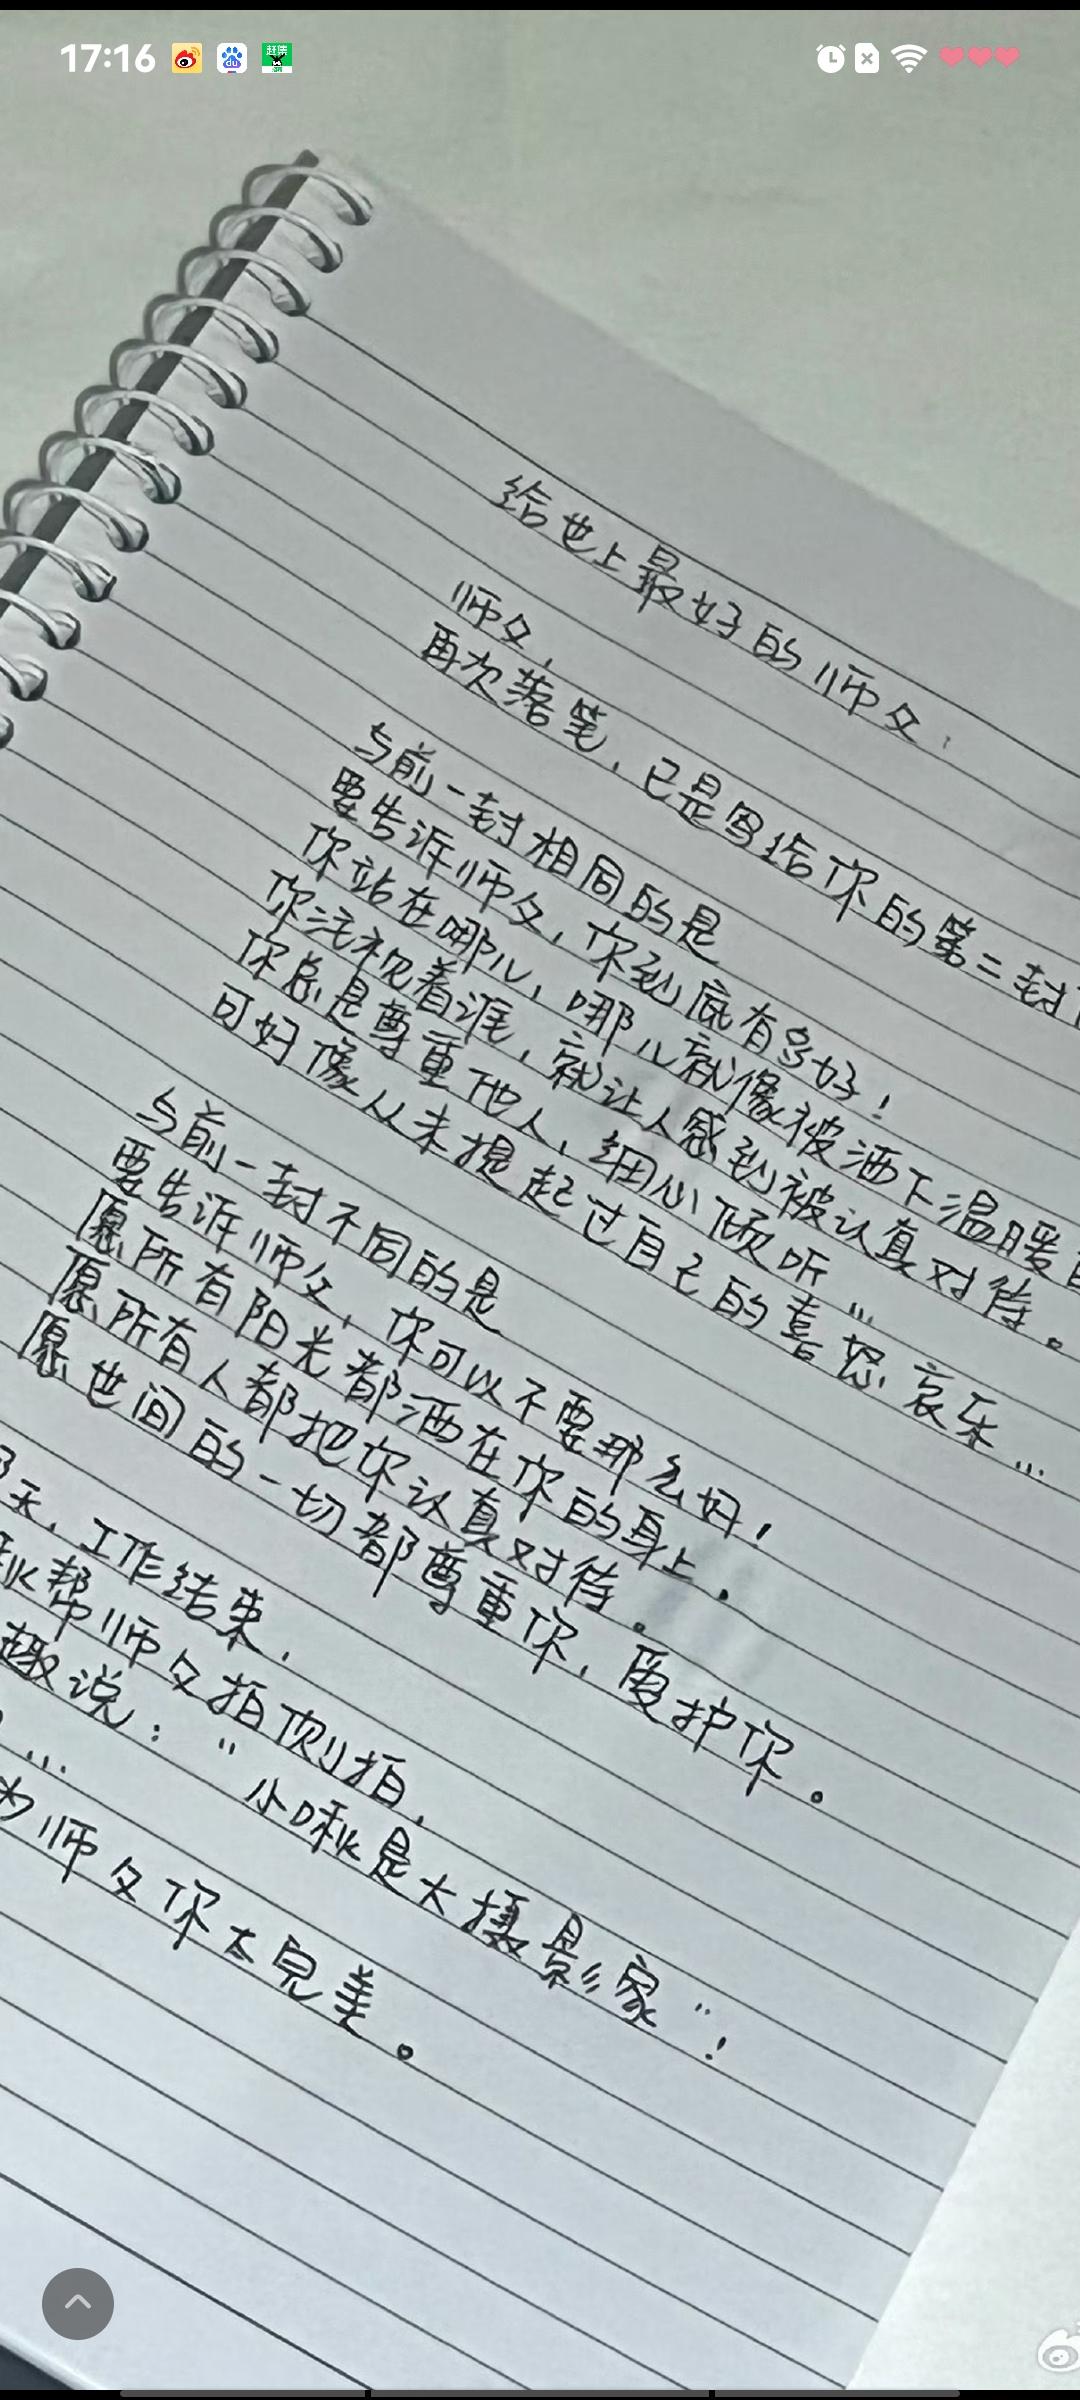 17:16
给世上最好的师父:
师父,
再次落笔,已是写给你的第二封
与前一封相同的是
要告诉师父,你到底有多好!
你站在哪儿,哪儿就像被洒下温暖
你注视着谁,就让人感到被认真对待。
你总是尊重他人,细心倾听…
可好像从未提起过自己的喜怒哀乐…
与前一封不同的是
要告诉师父,你可以不要那么好,
愿所有阳光都洒在你的身上,
愿所有人都把你认真对待。
愿世间的一切都尊重你,爱护你。
天,工作结束,
帮师父拍侧拍,
趣说:“小啾是大摄影家”!
…
为师父你太完美。